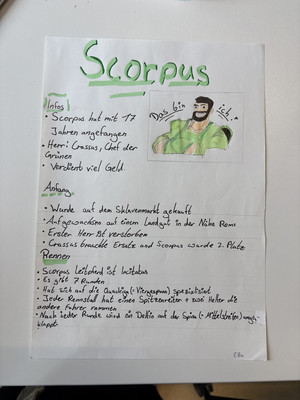 Scorpus
Infos
• Scorpus hat mit 17
Jahren angefangen
• Herr: Crassus, Chef der
Grünen
• Verdient viel Geld.
Das bin ich.
Anfang
• Wurde auf dem Sklavenmarkt gekauft
• Aufgewachsen auf einem Landgut in der Nähe Roms
• Erster Herr ist verstorben
• Crassus brauchte Ersatz und Scorpus wurde 2. Platz
Rennen
• Scorpus Leitpferd ist Incitatus
• Es gibt 7 Runden
• Hat sich auf die Quadriga (= Viergespann) spezialisiert
• Jeder Rennstall hat einen Spitzenreiter + zwei Helfer die
andere Fahrer rammen
• Nach jeder Runde wird ein Delfin auf der Spina (= Mittelstreifen) umge-
klappt